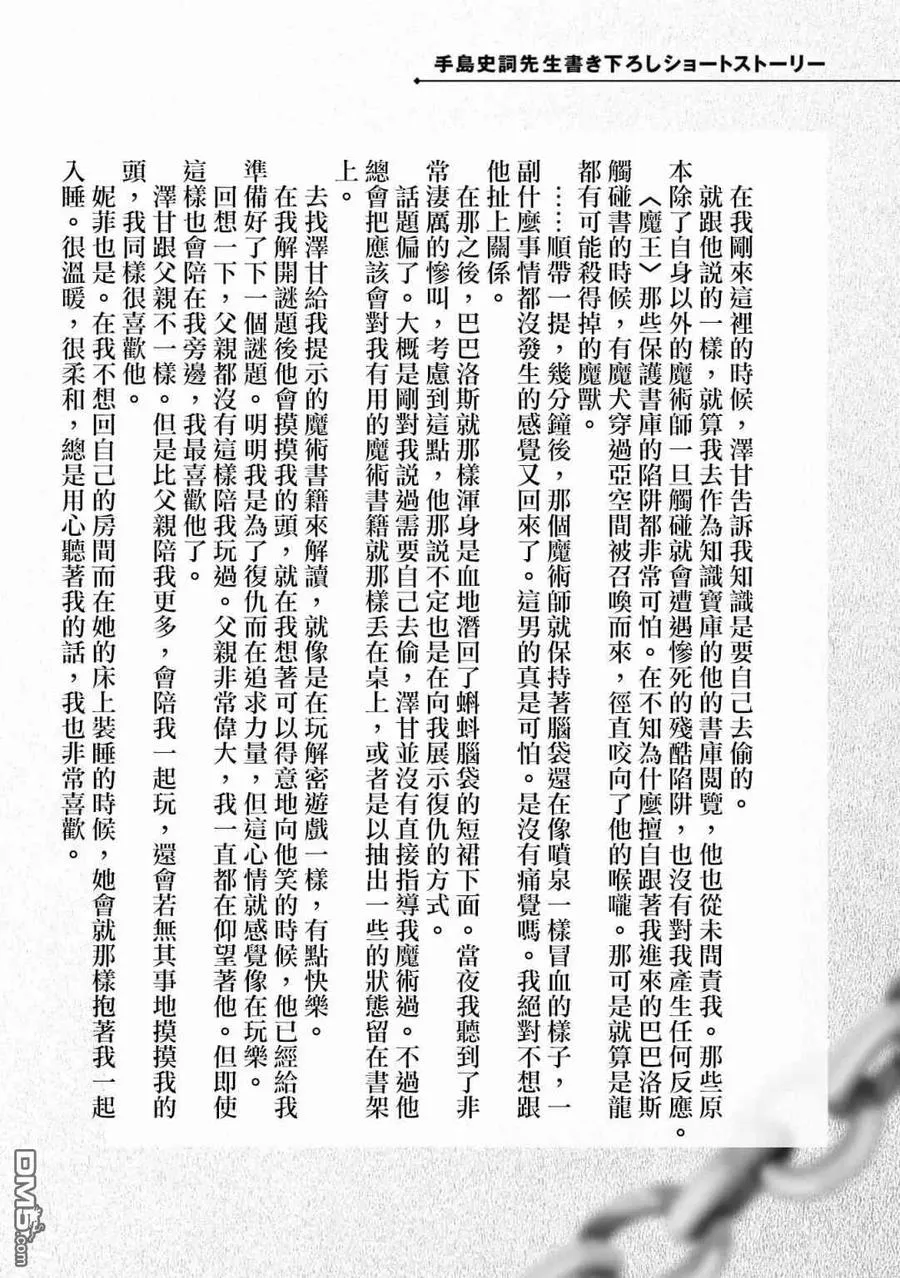 手島史詞先生書き下ろしショートストーリー
在我剛來這裡的時候，澤甘告訴我知識是要自己去偷的。
就跟他說的一樣，就算我去作為知識寶庫的他的書庫閱覽，他也從未問責我。那些原
本除了自身以外的魔術師一旦觸碰就會遭遇慘死的殘酷陷阱，也沒有對我產生任何反應。
〈魔王〉那些保護書庫的陷阱都非常可怕。在不知為什麼擅自跟著我進來的巴巴洛斯
觸碰書的時候，有魔犬穿過亞空間被召喚而來，徑直咬向了他的喉嚨。那可是就算是龍
都有可能殺得掉的魔獸。
……順帶一提，幾分鐘後，那個魔術師就保持著腦袋還在像噴泉一樣冒血的樣子，一
副什麼事情都沒發生的感覺又回來了。這男的真是可怕。是沒有痛覺嗎。我絕對不想跟
他扯上關係。
在那之後，巴巴洛斯就那樣渾身是血地潛回了蝌蚪腦袋的短裙下面。當夜我聽到了非
常淒厲的慘叫，考慮到這點，他那說不定也是在向我展示復仇的方式。
話題偏了。大概是剛對我說過需要自己去偷，澤甘並沒有直接指導我魔術過。不過他
總會把應該會對我有用的魔術書籍就那樣丟在桌上，或者是以抽出一些的狀態留在書架
上。
去找澤甘給我提示的魔術書籍來解讀，就像是在玩解密遊戲一樣，有點快樂。
在我解開謎題後他會摸摸我的頭，就在我想著可以得意地向他笑的時候，他已經給我
準備好了下一個謎題。明明我是為了復仇而在追求力量，但這心情就感覺像在玩樂。
回想一下，父親都沒有這樣陪我玩過。父親非常偉大，我一直都在仰望著他。但即使
這樣也會陪在我旁邊，我最喜歡他了。
澤甘跟父親不一樣。但是比父親陪我更多，會陪我一起玩，還會若無其事地摸摸我的
頭，我同樣很喜歡他。
妮菲也是。在我不想回自己的房間而在她的床上裝睡的時候，她會就那樣抱著我一起
入睡。很溫暖，很柔和，總是用心聽著我的話，我也非常喜歡。
DM5.com